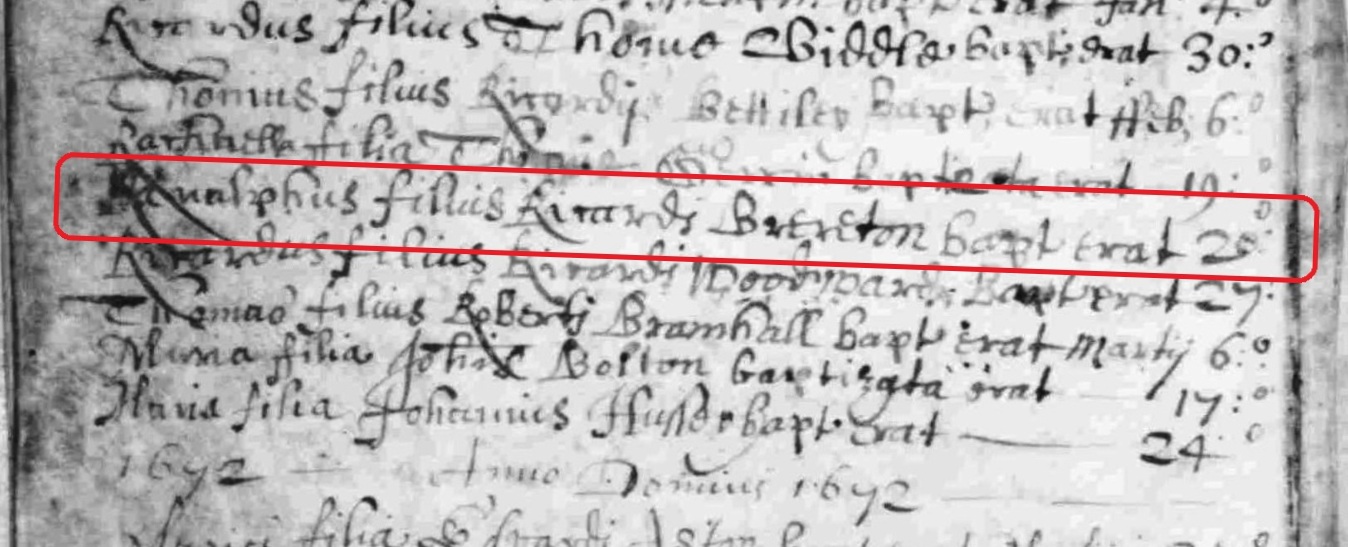 Jan 4
Ricardus filius Thome Widdle baptz erat 30:º
Thomas filius Ricardij Bettiley bapt erat ffeb, 6:º
filia baptizata erat 19:º
Ranalphus filius Ricardi Brereton bapt erat 20:º
Ricardus filius Ricardi Woodward bapt erat 27:
Thomas filius Roberti Bramhall bapt erat Martij 6:º
Maria filia Johis Bolton baptizata erat 17:º
Maria filia Johannis bapt erat 24º
1672 Anno Domini 1672
filia